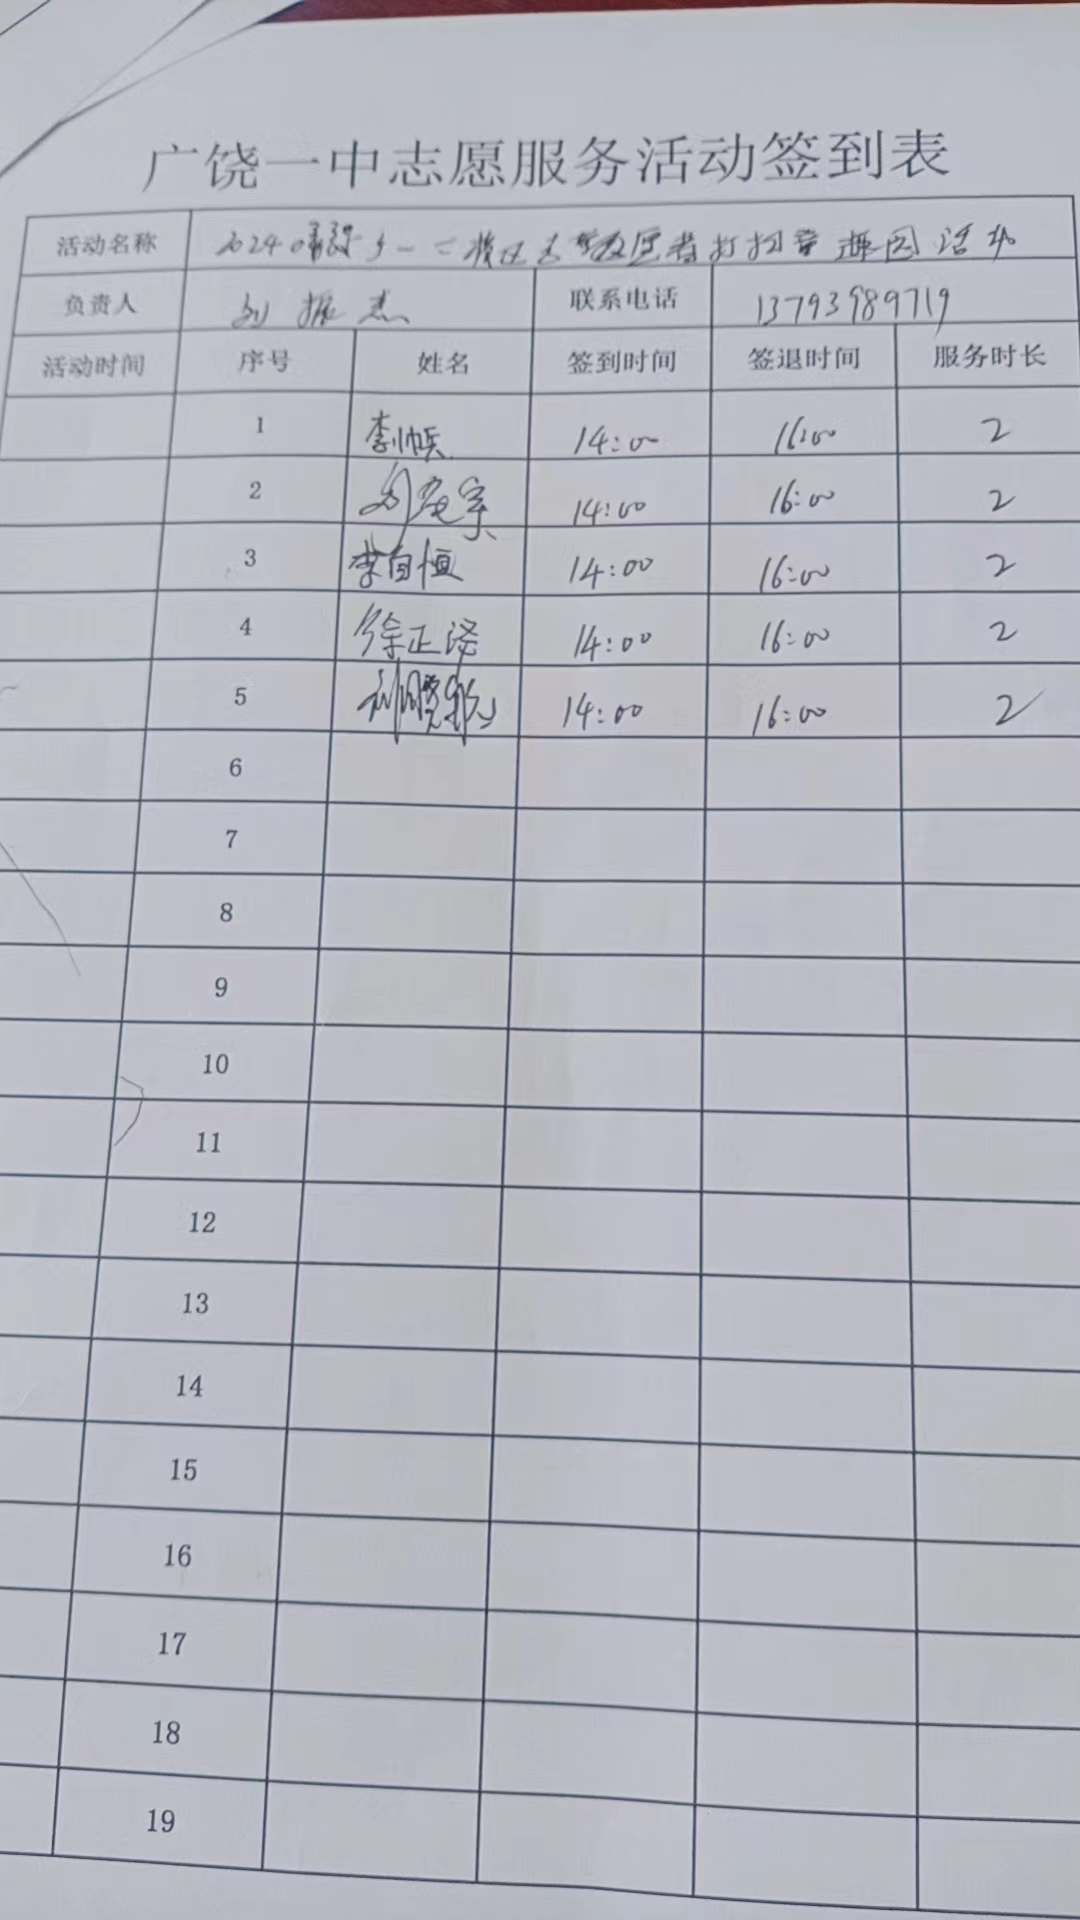 广饶一中志愿服务活动签到表
活动名称 2024 打扫 园活动
负责人 刘振杰 联系电话 13793989719
活动时间 序号 姓名 签到时间 签退时间 服务时长
1 李帅兵 14:00 16:00 2
2 刘 宗 14:00 16:00 2
3 李自恒 14:00 16:00 2
4 徐正泽 14:00 16:00 2
5 14:00 16:00 2
6
7
8
9
10
11
12
13
14
15
16
17
18
19